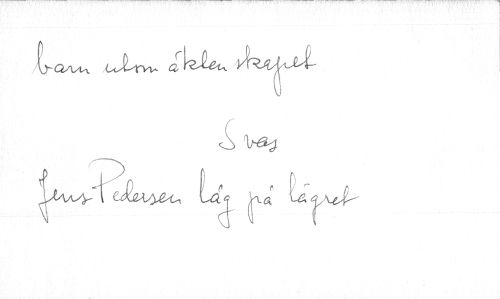 barn utom äktenskapet
Svas
Jens Pedersen låg på lägret